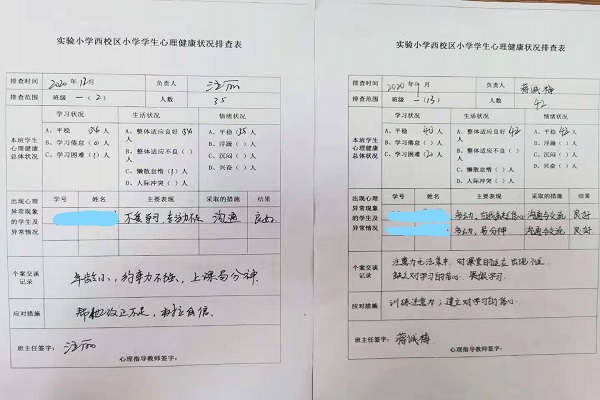 实验小学西校区小学学生心理健康状况排查表
排查时间 2020年12月 负责人 汪丽
排查范围 班级 一(2) 人数 35
本班学生心理健康总体状况
学习状况 生活状况 情绪状况
A、平稳 人
B、学习倦怠(0)人
C、学习困难(1)人
A、整体适应良好 人
B、整体适应不良()人
C、懒散怠惰(1)人
D、人际冲突()人
A、平稳 35 人
B、浮躁()人
C、沉闷()人
D、兴奋()人
出现心理异常现象的学生及异常情况
学号 姓名 主要表现 采取的措施 结果
沟通 良好
个案交谈记录
年龄小,约束力不强,上课易分神
应对措施
帮他改正不足,树立自信
班主任签字: 汪丽
心理指导教师签字:
实验小学西校区小学学生心理健康状况排查表
排查时间 2020年9月 负责人 蒋诚梅
排查范围 班级 一(13) 人数 42
本班学生心理健康总体状况
学习状况 生活状况 情绪状况
A、平稳 40 人
B、学习倦怠()人
C、学习困难(2)人
A、整体适应良好 42 人
B、整体适应不良()人
C、懒散怠惰()人
D、人际冲突()人
A、平稳 42 人
B、浮躁()人
C、沉闷()人
D、兴奋()人
出现心理异常现象的学生及异常情况
学号 姓名 主要表现 采取的措施 结果
沟通与交流 良好
易分神 沟通与交流 良好
个案交谈记录
注意力无法集中,
缺乏对学习的信心
应对措施
训练注意力;建立对学习的信心
班主任签字: 蒋诚梅
心理指导教师签字: